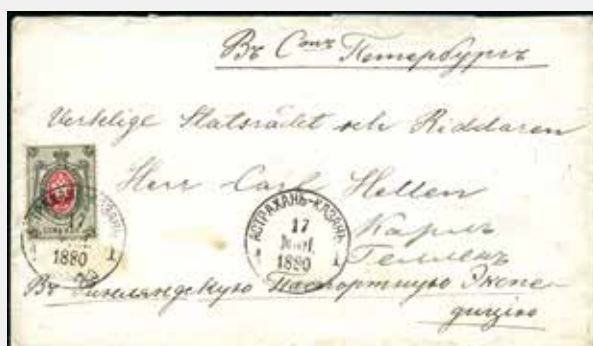 Въ Сот Петербургъ
Verklige Statsrådet och Riddaren
Herr Carl Hellen
Карлъ
Гелленъ
Въ Финляндскую Паспортную Экспе-
дицію
АСТРАХАНЬ-КАЗАНЬ
17
1880
1 1
1880
1